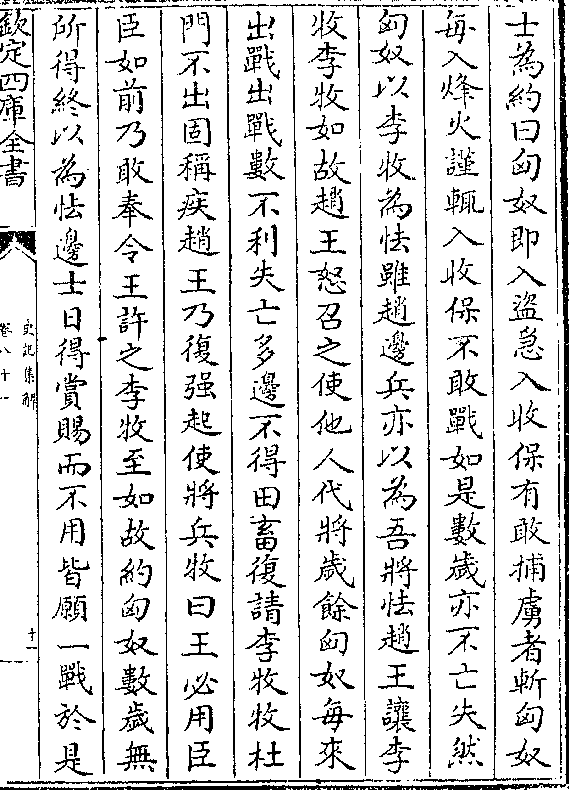 士為約曰匈奴即入盜急入收保有敢捕虜者斬匈奴
每入烽火謹輒入收保不敢戰如是數歲亦不亡失然
匈奴以李牧為怯雖趙邊兵亦以為吾將怯趙王讓李
牧李牧如故趙王怒召之使他人代將歲餘匈奴每來
出戰出戰數不利失亡多邊不得田畜復請李牧牧杜
門不出固稱疾趙王乃復强起使將兵牧曰王必用臣
臣如前乃敢奉令王許之李牧至如故約匈奴數歲無
所得終以為怯邊士日得賞賜而不用皆願一戰於是
欽定四庫全書
史記集解
卷八十一
十一